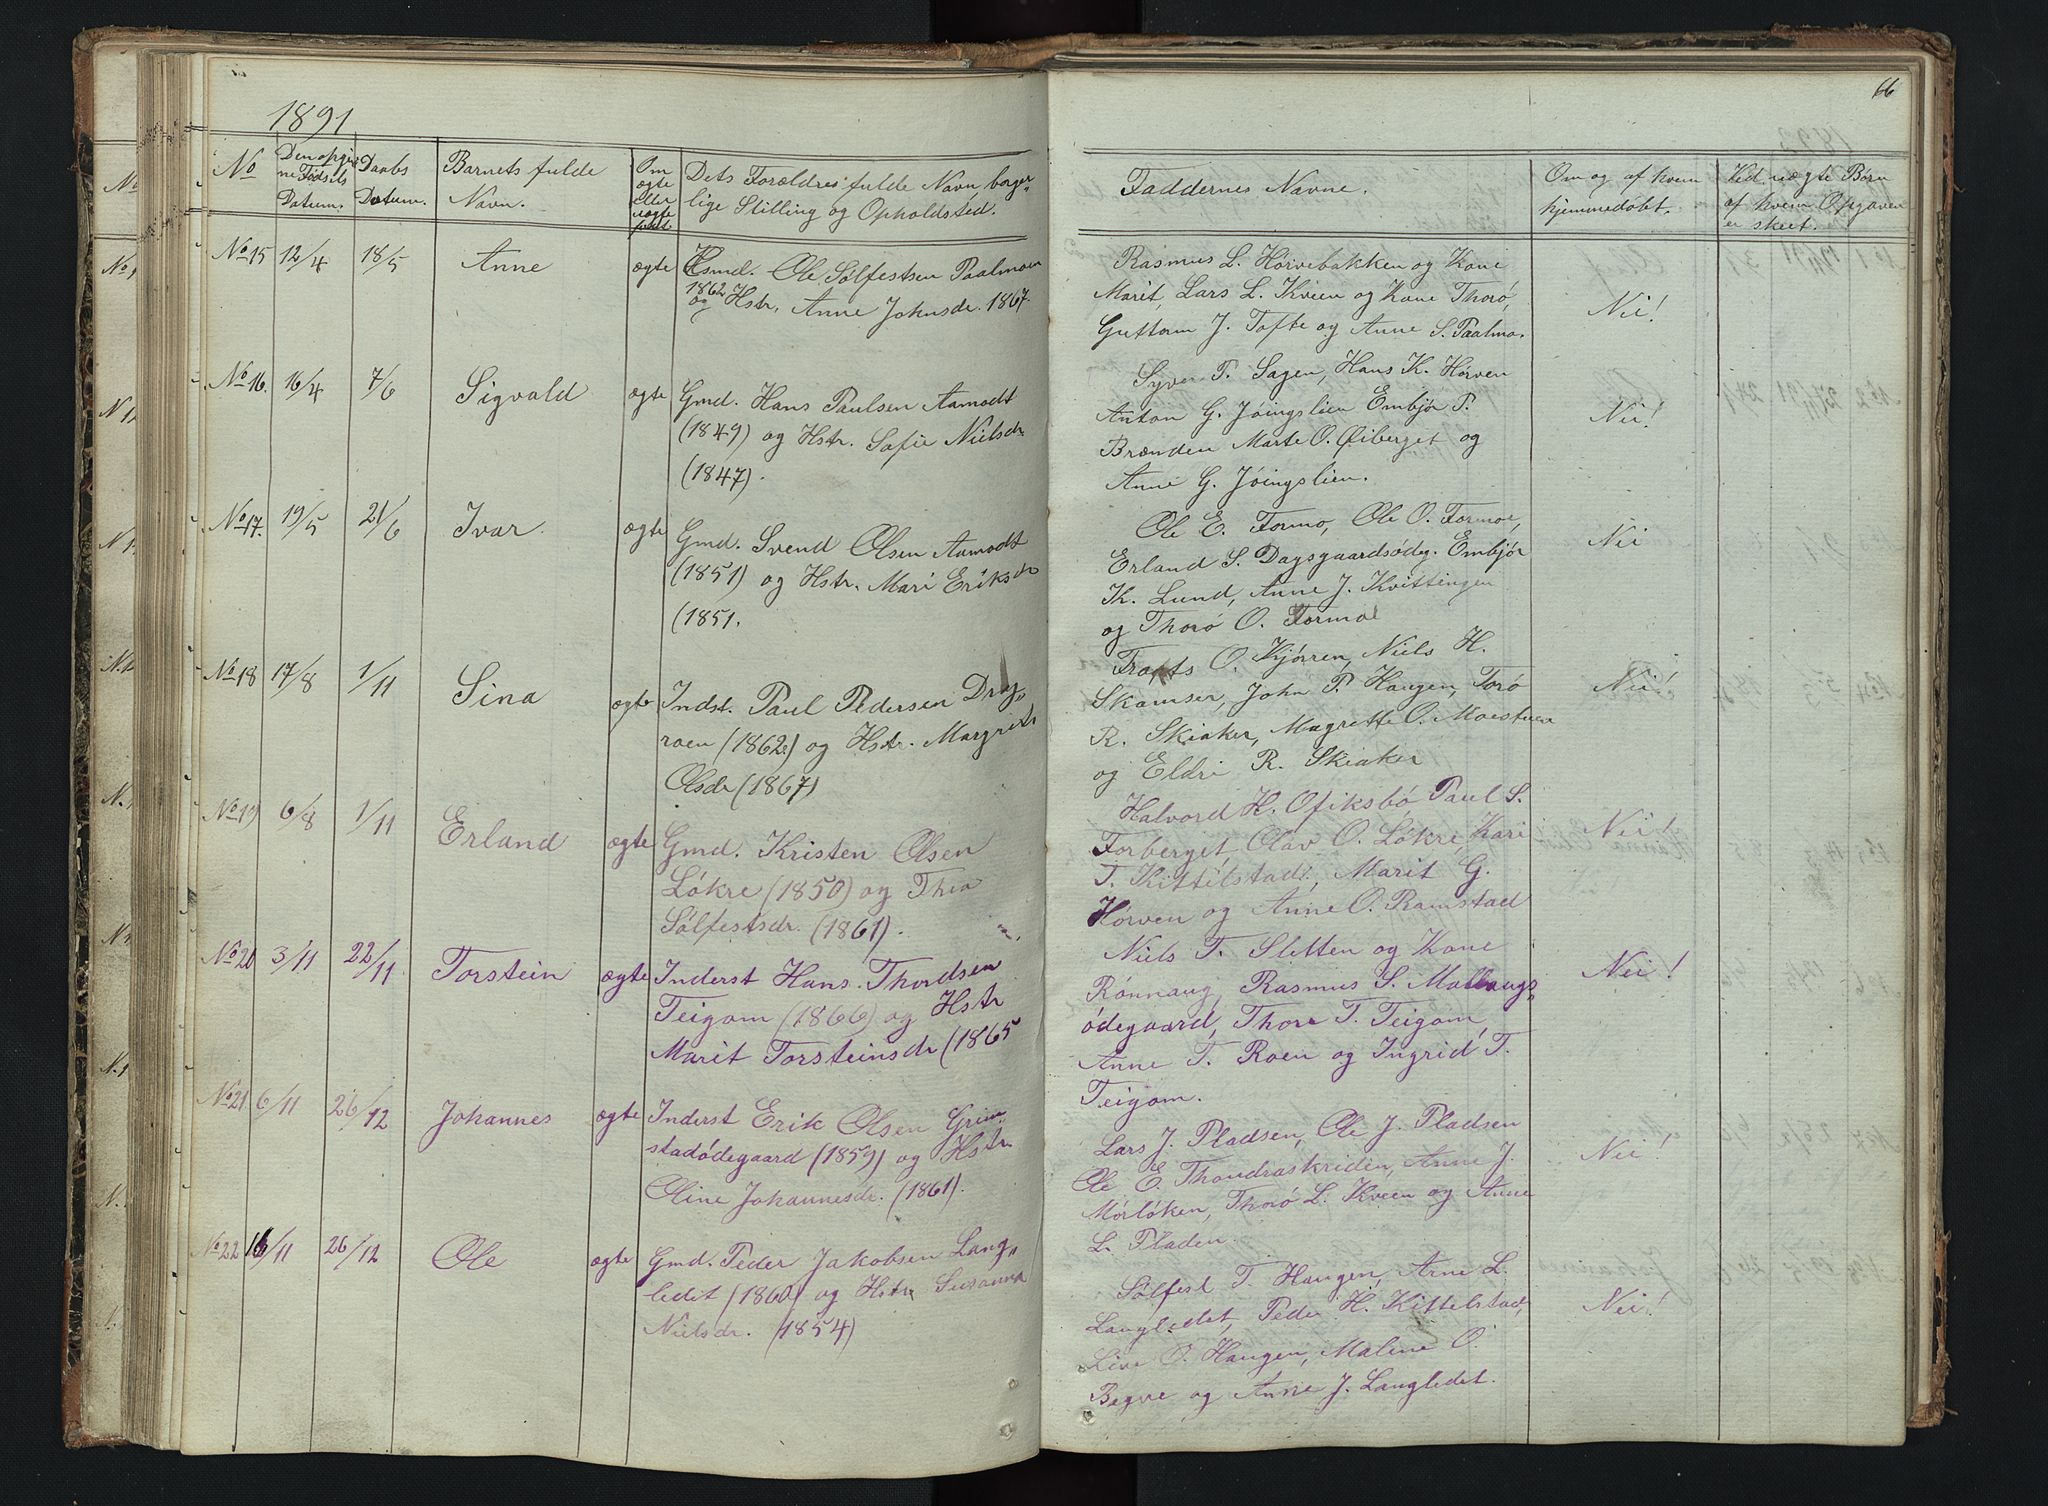 1891
No
Den opgiv
ne Fødsels
Datum.
Daabs
Datum.
Barnets fulde
Navn.
Om
ægte
eller
uægte
født.
Dets Forældres fulde Navn, borger„
lige Stilling og Opholdsted.
No 15 12/4 18/5 Anne ægte Hsmd. Ole Sølfestsen Paalmoen
1862 og Hstr. Anne Johnsdr. 1867.
No 16. 16/4 7/6 Sigvald ægte Gmd. Hans Paulsen Aamodt
(1849) og Hstr. Sofie Nielsdr
(1847).
No 17. 19/5 21/6 Ivar ægte Gmd. Svend Olsen Aamodt
(1851) og Hstr. Mari Eriksdr
(1851.
No 18 17/8 1/11 Sina ægte Indst. Paul Pedersen Dray„
roen (1862) og Hstr. Margrit
Olsdr (1867)
No 19 6/8 1/11 Erland ægte Gmd. Kristen Olsen
Løkre (1850) og Thea
Sølfestsdr. (1861).
No 20 3/11 22/11 Torstein ægte Inderst Hans Thordsen
Teigom (1866) og Hstr
Marit Torsteinsdr (1865
No 21 6/11 26/12 Johannes ægte Inderst Erik Olsen Grim„
stadødegaard (1859) og Hstr.
Oline Johannesdr. (1861).
No 22 16/11 26/12 Ole ægte Gmd. Peder Jakobsen Lang„
ledet (1860) og Hstr Susanna
Nielsdr. (1854)
66
Faddernes Navne.
Om og af hvem
hjemmedøbt.
Ved uægte Børn
af hvem Opgaven
er skeet.
Rasmus L. Hørvebakken og Kone
Marit, Lars L. Kveen og Kone Thorø,
Guttorm J. Tofte og Anne S. Paalmo.
Nei!
Syver P. Sagen, Hans K. Hørven
Anton G. Jøingslien Embjør P.
Brænden Marte O. Øiberget og
Anne G. Jøingslien.
Nei!
Ole E. Formo, Ole O. Formoe,
Erland S. Dagsgaardsødeg. Embjør
K. Lund, Anne J. Kvittingen
og Thorø O. Formoe
Nei
O. Kjørren, Niels H.
Skamser, John P. Haugen, Torø
R. Skiaker, Magrette O. Moestuen
og Eldri R. Skiaker
Nei!
Halvord H. Ofiksbø Paul S.
Forberget Olav O. Løkre, Kari
T. Kittilstad, Marit G.
Hørven og Anne O. Ramstad
Nei!
Niels T. Sletten og Kone
Rønnaug, Rasmus S. Mallangs„
ødegaard, Thore T. Teigom,
Anne T. Roen og Ingrid T.
Teigom.
Nei!
Lars J. Pladsen, Ole J. Pladsen
Ole E. Thondraskriden, Anne J.
Mørløken, Thorø L. Kveen og Anne
L. Pladen.
Nei!
Sølfest T. Haugen, Arne L.
Langledet, Peder H. Kittelstad,
Live O. Haugen, Malene O.
Begve og Anne J. Langledet.
Nei!